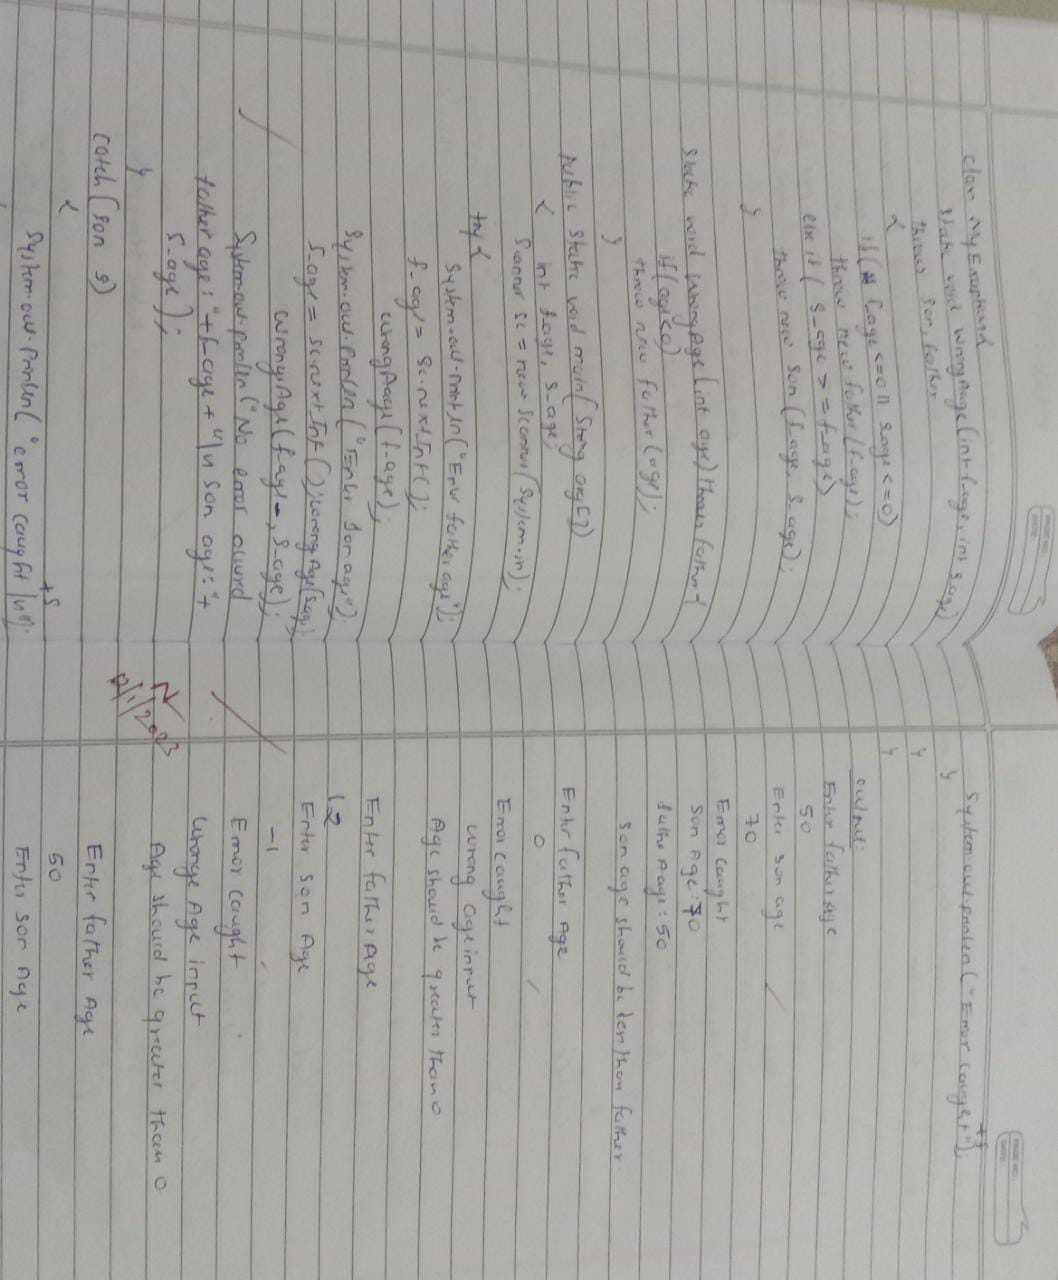 PAGE NO:
DATE:
class MyException{
static void wrongAage(int f_age, int s_age)
throws son, father
{
if(f_age <=0 || s_age <=0)
throw new father(f-age);
else if ( s_age >= f-age)
throw new son (f_age, s_age);
}
static void wrongAge(int age) throws father {
if(age<0)
throw new father(age);
}
public static void main(String arg[])
{ int f_age, s_age;
Scanner sc = new Scanner(System.in);
try {
System.out.println("Entr father age");
f_age = sc.nextInt();
wrongAage(f-age);
System.out.println("Enter son age");
s_age = sc.nextInt(); wrongAge(s_age);
wrongAge(f-age, s_age);
System.out.println("No error occured
father age: "+f-age + "\n son age: "+
s_age);
}
catch(son s)
{
System.out.println("error caught \n"
+s
);
PAGE NO:
DATE:
System.out.println("Error caught"
+f
);
}
}
}
output:
Enter father Age
50
Enter son age
70
Error caught
Son Age: 70
father Aage: 50
son age should be less than father
Entr father Age
0
Error caught
wrong age input
Age should be greater than 0
Enter father Age
12
Enter son Age
-1
Error caught
Wronge Age input
Age should be greater than 0
Enter father Age
50
Enter son Age